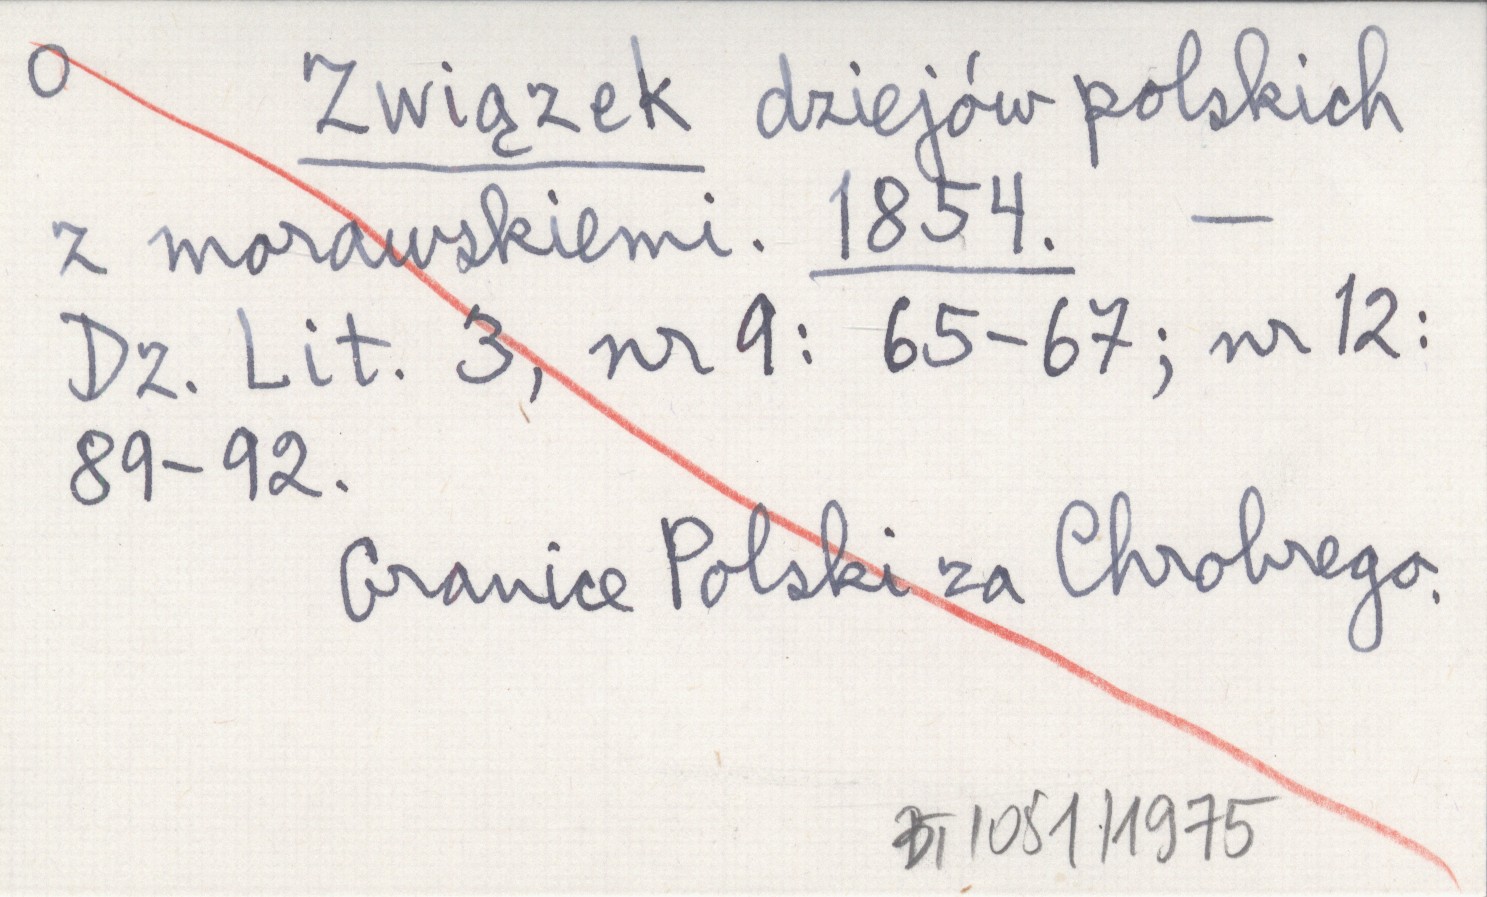 O Związek dziejów polskich
z morawskiemi. 1854. —
Dz. Lit. 3, nr 9: 65-67; nr 12:
89-92.
Granice Polski za Chrobrego.
1051/1975